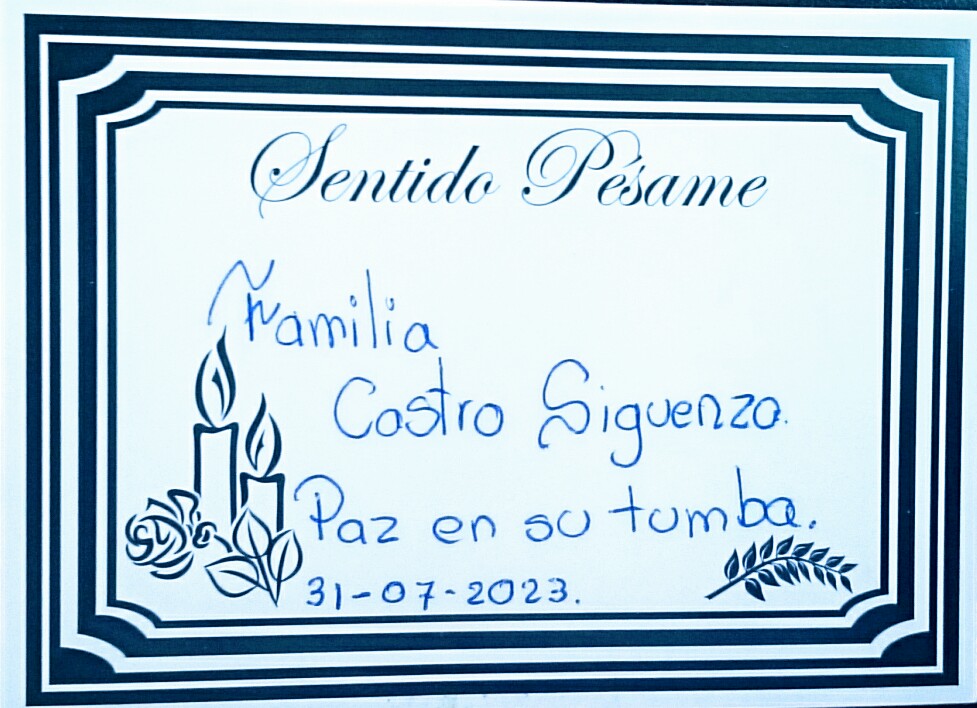 Sentido Pésame
Familia
Castro Siguenza.
Paz en su tumba.
31-07-2023.